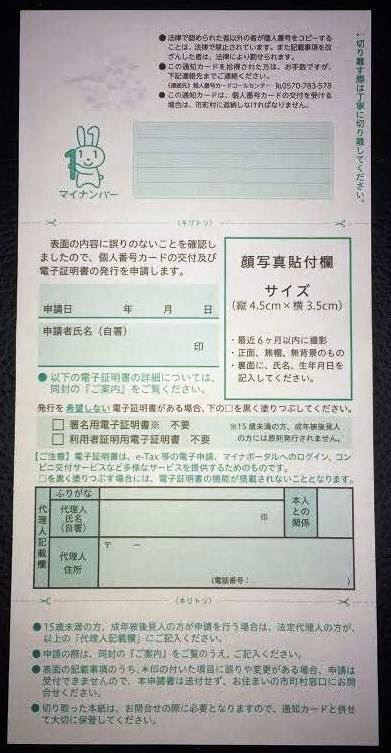 ●法律で認められた者以外の者が個人番号をコピーする
ことは、法律で禁止されています。また記載事項を改
ざんした者は、法律により罰せられます。
●この通知カードを拾得された方は、お手数ですが、
下記連絡先までご連絡ください。
(連絡先) 個人番号カードコールセンター ℡0570-783-578
●この通知カードは、個人番号カードの交付を受ける
場合は、市町村に返納しなければなりません。
切り離す際は丁寧に切り離してください。
マイナンバー
(キリトリ)
表面の内容に誤りのないことを確認し
ましたので、個人番号カードの交付及び
電子証明書の発行を申請します。
申請日 年 月 日
申請者氏名(自署)
印
顔写真貼付欄
サイズ
(縦4.5cm×横3.5cm)
・最近6ヶ月以内に撮影
・正面、無帽、無背景のもの
・裏面に、氏名、生年月日を
記入してください。
●以下の電子証明書の詳細については、
同封の『ご案内』をご覧ください。
発行を希望しない電子証明書がある場合、下の□を黒く塗りつぶしてください。
□ 署名用電子証明書※ 不要
□ 利用者証明用電子証明書 不要
※15歳未満の方、成年被後見人
の方には原則発行されません。
【ご注意】電子証明書は、e-Tax等の電子申請、マイナポータルへのログイン、コン
ビニ交付サービスなど多様なサービスを提供するためのものです。
□を黒く塗りつぶす場合には、電子証明書の機能が搭載されないこととなります。
代理人記載欄
ふりがな
代理人
氏名
(自署)
印
本人
との
関係
代理人
住所
〒 ー
(電話番号: )
(キリトリ)
●15歳未満の方、成年被後見人の方が申請を行う場合は、法定代理人の方が、
以上の「代理人記載欄」にご記入ください。
●申請の際は、同封の『ご案内』をご覧のうえ、ご記入ください。
●表面の記載事項のうち、*印の付いた項目に誤りや変更がある場合、申請は
受付できませんので、本申請書は送付せず、お住まいの市町村窓口にお問
合せください。
●切り取った本紙は、お問合せの際に必要となりますので、通知カードと併せ
て大切に保管してください。